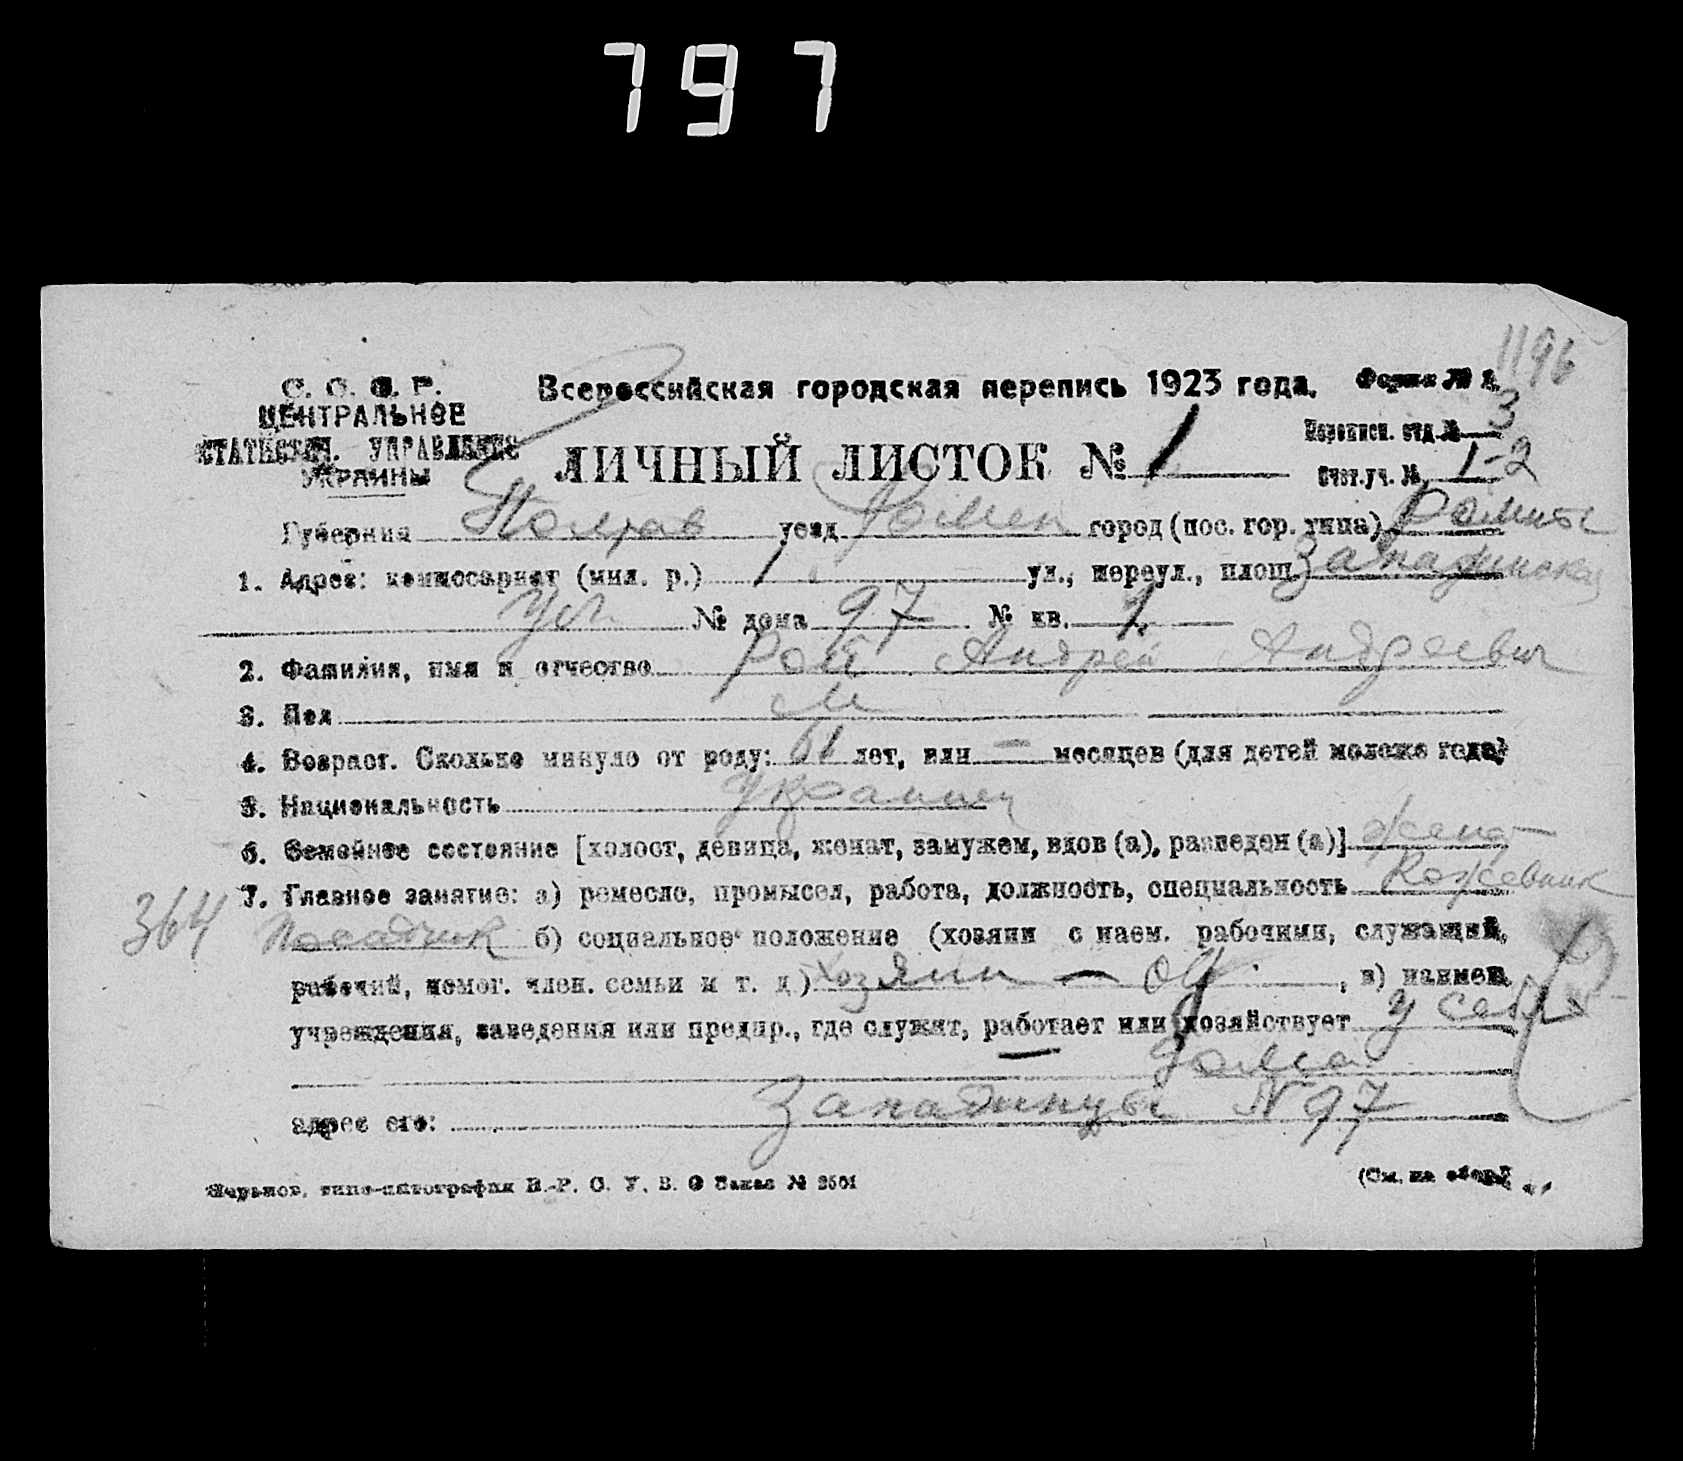 797
1196
С. С. С. Р. Всероссийская городская перепись 1923 года. Форма № 2.
ЦЕНТРАЛЬНОЕ
СТАТИСТИЧ. УПРАВЛЕНИЕ
УКРАИНЫ
Переписн. отд. № 3
ЛИЧНЫЙ ЛИСТОК № 1
Счет. уч. № 1-2
Губерния Полтав уезд Ромен город (пос. гор. типа) Ромны
1. Адрес: комиссариат (мил. р.) 1 ул., переул., площ. Западинская
ул. № дома 97 № кв. 1
2. Фамилия, имя и отчество Рот Андрей Андреевич
3. Пол м
4. Возраст. Сколько минуло от роду: 61 лет, или — месяцев (для детей моложе года)
5. Национальность Украинец
6. Семейное состояние [холост, девица, женат, замужем, вдов (а), разведен (а)] женат
7. Главное занятие: а) ремесло, промысел, работа, должность, специальность Кожевник
364 б) социальное положение (хозяин с наем. рабочими, служащий,
рабочий, помог. член. семьи и т. д.) хозяин — од , в) наимен.
учреждения, заведения или предпр., где служит, работает или хозяйствует у себя
дома
адрес его: Западинцы N 97
Харьков, типо-литография В.-Р. С. У. В. О Заказ № 3501
(См. на оборот.